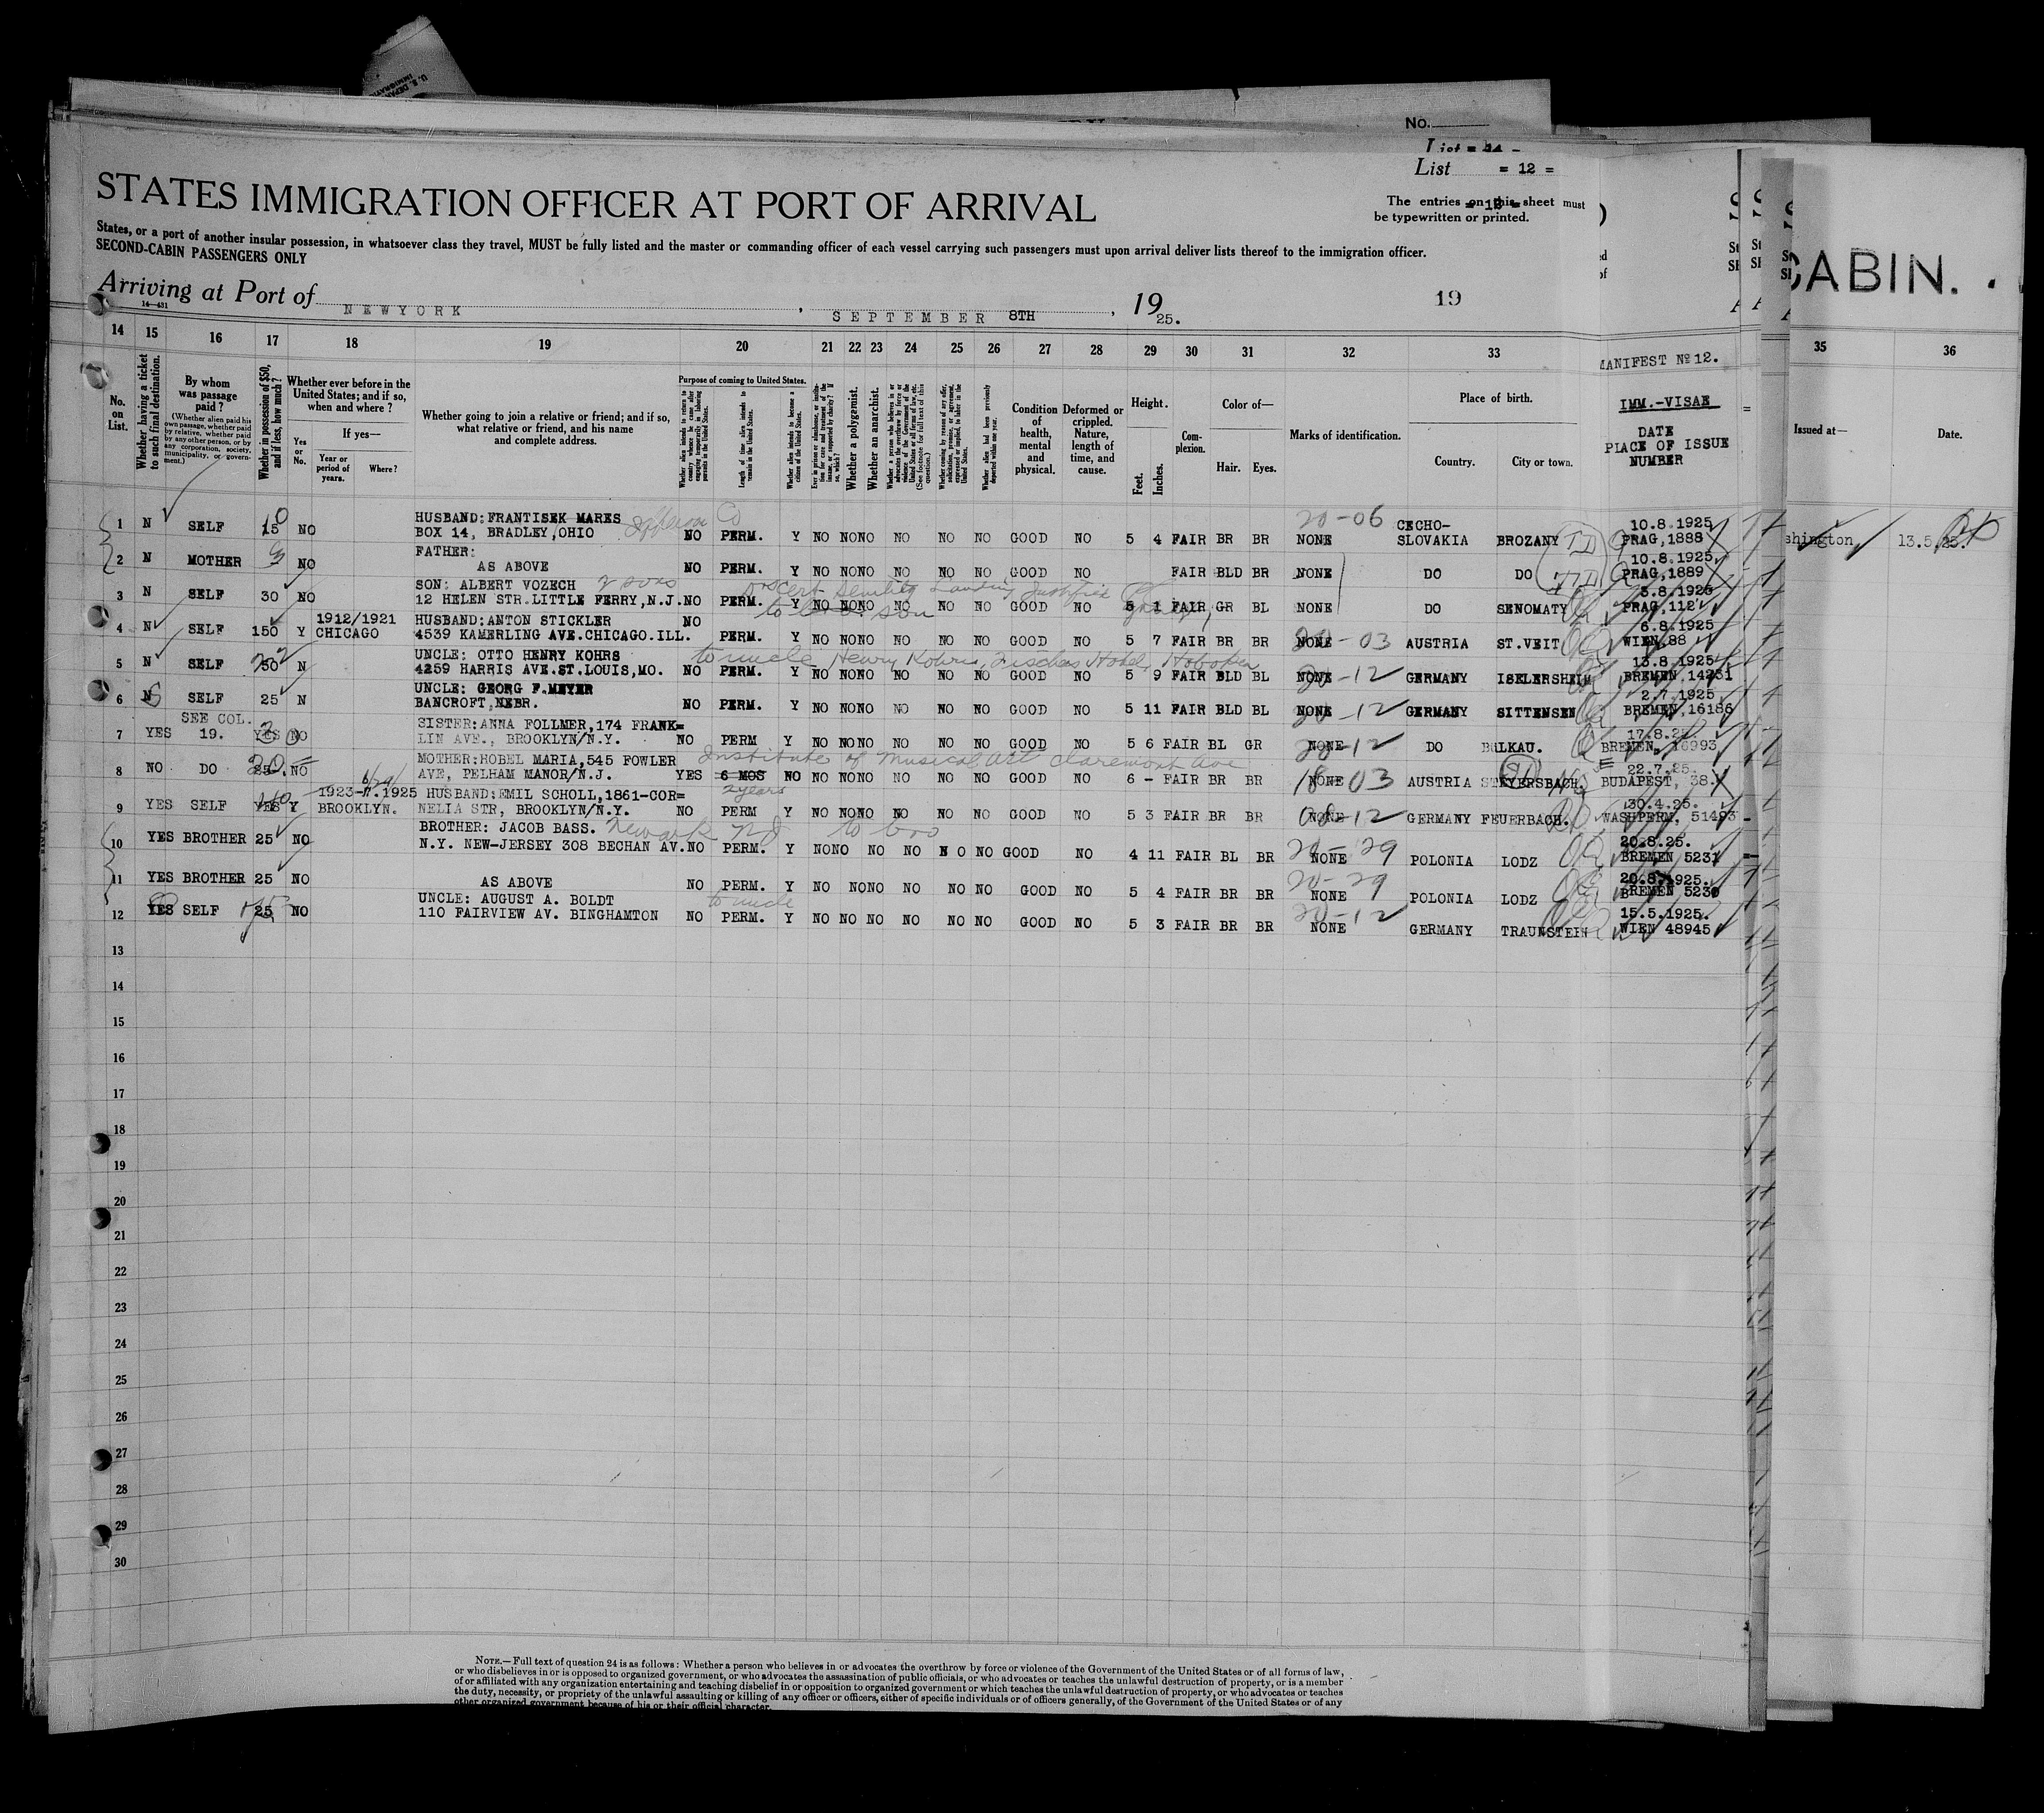 U. S. DEPAR
IMMIGRATI
No.
List = 12 =
STATES IMMIGRATION OFFICER AT PORT OF ARRIVAL
The entries on this sheet must
be typewritten or printed.
States, or a port of another insular possession, in whatsoever class they travel, MUST be fully listed and the master or commanding officer of each vessel carrying such passengers must upon arrival deliver lists thereof to the immigration officer.
SECOND-CABIN PASSENGERS ONLY
CABIN.
Arriving at Port of NEWYORK, SEPTEMBER 8TH, 1925.
19
14 15 16 17 18 19 20 21 22 23 24 25 26 27 28 29 30 31 32 33 35 36
MANIFEST No 12.
No. on List.
Whether having a ticket to such final destination.
By whom was passage paid?
(Whether alien paid his own passage, whether paid by relative, whether paid by any other person, or by any corporation, society, municipality, or government.)
Whether in possession of $50, and if less, how much?
Whether ever before in the United States; and if so, when and where?
Yes or No.
If yes—
Year or period of years.
Where?
Whether going to join a relative or friend; and if so, what relative or friend, and his name and complete address.
Purpose of coming to United States.
Whether alien intends to return to country whence he came after engaging temporarily in laboring pursuits in the United States.
Length of time alien intends to remain in the United States.
Whether alien intends to become a citizen of the United States.
Whether a polygamist.
Whether an anarchist.
Condition of health, mental and physical.
Deformed or crippled. Nature, length of time, and cause.
Height.
Feet. Inches.
Complexion.
Color of—
Hair. Eyes.
Marks of identification.
Place of birth.
Country. City or town.
IMM.-VISAE
DATE
PLACE OF ISSUE
NUMBER
Issued at—
Date.
HUSBAND: FRANTISEK MARES 20-06 CECHO- 10.8.1925
1 N SELF 15 NO BOX 14, BRADLEY, OHIO Jefferson Co NO PERM. Y NO NONO NO NO NO GOOD NO 5 4 FAIR BR BR NONE SLOVAKIA BROZANY PRAG, 1888
shington 13.5.25.
FATHER: 10.8.1925
2 N MOTHER NO AS ABOVE NO PERM. Y NO NONO NO NO NO GOOD NO FAIR BLD BR NONE DO DO PRAG, 1889
SON: ALBERT VOZECH 2 sons 3.8.1925
3 N SELF 30 NO 12 HELEN STR. LITTLE FERRY, N.J. NO PERM. Y NO NONO NO NO NO GOOD NO 5 1 FAIR GR BL NONE DO SENOMATY PRAG, 112
1912/1921 HUSBAND: ANTON STICKLER NO 6.8.1925
4 N SELF 150 Y CHICAGO 4539 KAMERLING AVE. CHICAGO. ILL. PERM. Y NO NONO NO NO NO GOOD NO 5 7 FAIR BR BR NONE 20-03 AUSTRIA ST. VEIT WIEN, 88
UNCLE: OTTO HENRY KOHRS to uncle Henry Kohrs, Fischers Hotel, Hoboken 13.8.1925
5 N SELF 50 N 4259 HARRIS AVE. ST. LOUIS, MO. NO PERM. Y NO NONO NO NO NO GOOD NO 5 9 FAIR BLD BL NONE 20-12 GERMANY ISELERSHEIM BREMEN, 14231
UNCLE: GEORG F. MEYER 2.7.1925
6 N SELF 25 N BANCROFT, NEBR. NO PERM. Y NO NONO NO NO NO GOOD NO 5 11 FAIR BLD BL NONE 20-12 GERMANY SITTENSEN BREMEN, 16186
SEE COL. SISTER: ANNA FOLLMER, 174 FRANK= 17.8.25.
7 YES 19. YES NO LIN AVE., BROOKLYN/N.Y. NO PERM Y NO NONO NO NO NO GOOD NO 5 6 FAIR BL GR NONE 20-12 DO BULKAU. BREMEN, 16993
MOTHER: HOBEL MARIA, 545 FOWLER Institute of Musical Art Claremont Ave 22.7.25.
8 NO DO 25 NO AVE, PELHAM MANOR/N.J. YES 6 MOS NO NO NONO NO NO NO GOOD NO 6 - FAIR BR BR NONE 18-03 AUSTRIA STEYERSBACH. BUDAPEST, 38.
2 years
1923-4.1925 HUSBAND: EMIL SCHOLL, 1861-COR= 30.4.25.
9 YES SELF YES Y BROOKLYN. NELIA STR, BROOKLYN/N.Y. NO PERM Y NO NONO NO NO NO GOOD NO 5 3 FAIR BR BR NONE 08-12 GERMANY FEUERBACH. WASHPERM, 51493
BROTHER: JACOB BASS. Newark NJ to bro 20.8.25.
10 YES BROTHER 25 NO N.Y. NEW-JERSEY 308 BECHAN AV. NO PERM. Y NONO NO NO NO NO GOOD NO 4 11 FAIR BL BR NONE 20-29 POLONIA LODZ BREMEN 5231
20.8.1925.
11 YES BROTHER 25 NO AS ABOVE NO PERM. Y NO NONO NO NO NO GOOD NO 5 4 FAIR BR BR 20-29 NONE POLONIA LODZ BREMEN 5230
UNCLE: AUGUST A. BOLDT to uncle 15.5.1925.
12 YES SELF 25 NO 110 FAIRVIEW AV. BINGHAMTON NO PERM. Y NO NO NO NO NO NO GOOD NO 5 3 FAIR BR BR 20-12 NONE GERMANY TRAUNSTEIN WIEN 48945
13
14
15
16
17
18
19
20
21
22
23
24
25
26
27
28
29
30
NOTE.—Full text of question 24 is as follows: Whether a person who believes in or advocates the overthrow by force or violence of the Government of the United States or of all forms of law,
or who disbelieves in or is opposed to organized government, or who advocates the assassination of public officials, or who advocates or teaches the unlawful destruction of property, or is a member
of or affiliated with any organization entertaining and teaching disbelief in or opposition to organized government or which teaches the unlawful destruction of property, or who advocates or teaches
the duty, necessity, or propriety of the unlawful assaulting or killing of any officer or officers, either of specific individuals or of officers generally, of the Government of the United States or of any
other organized government because of his or their official character.